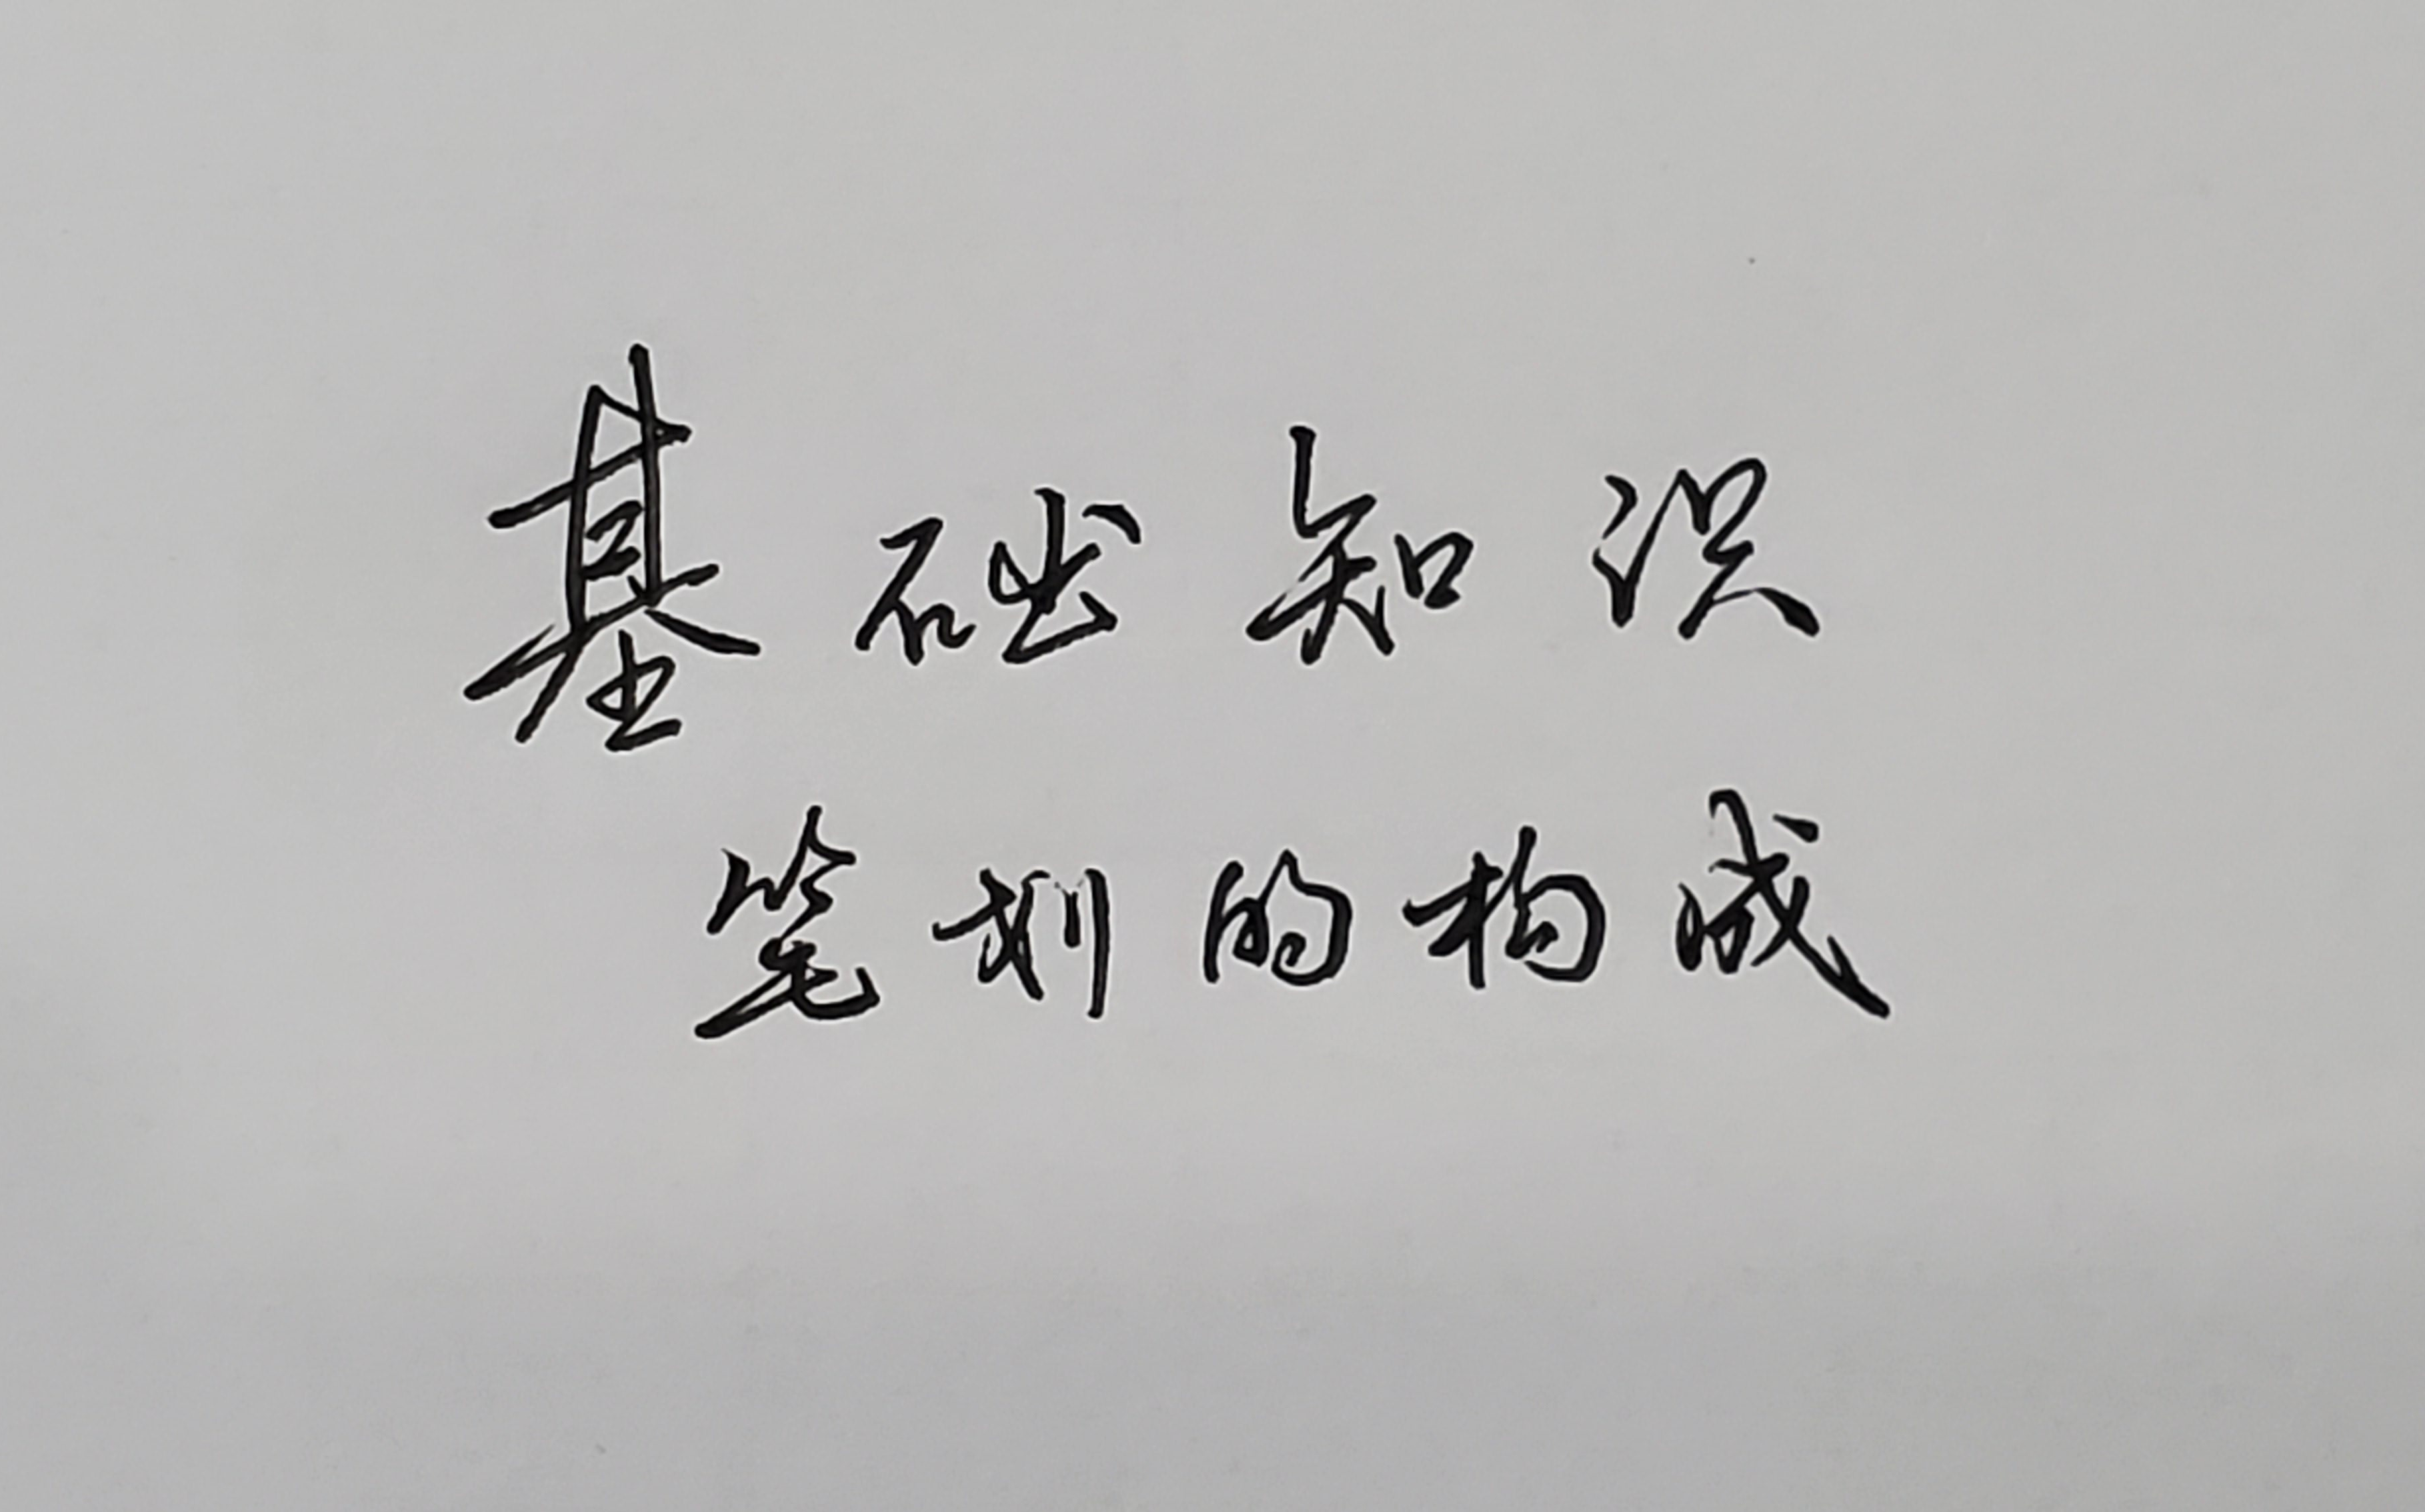 基础知识
笔划的构成